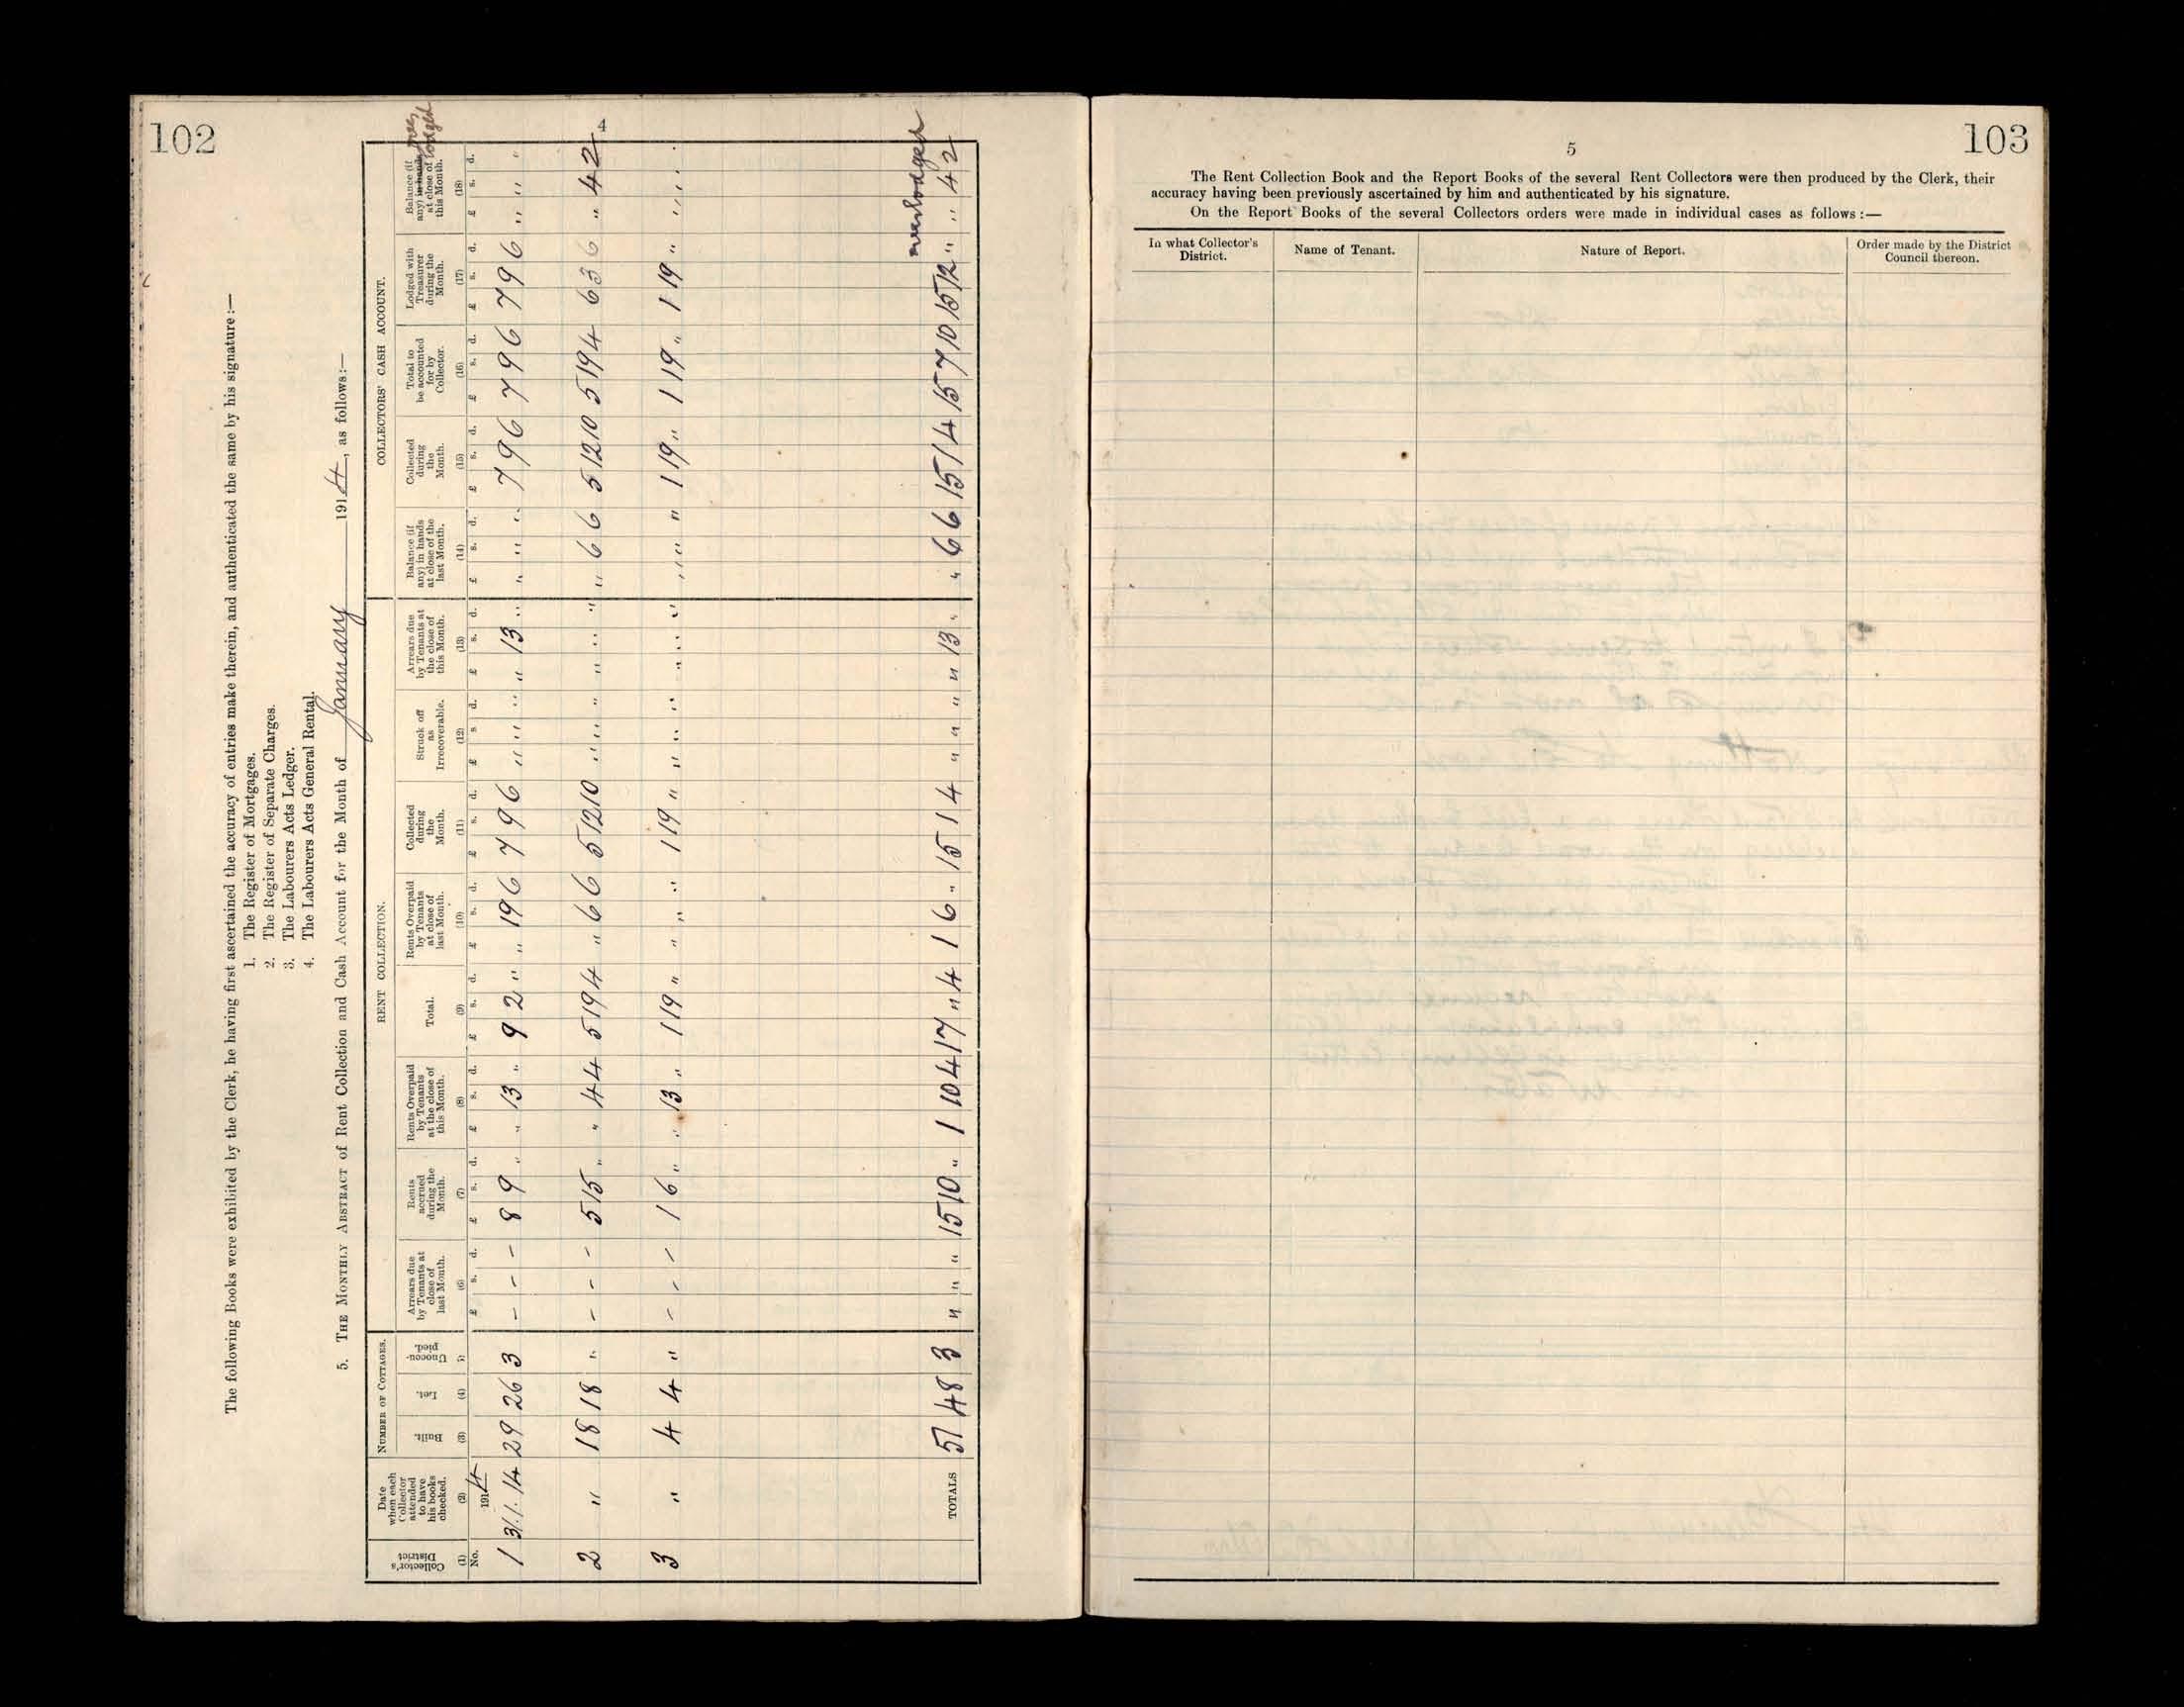 102
4
The following Books were exhibited by the Clerk, he having first ascertained the accuracy of entries make therein, and authenticated the same by his signature :—
1. The Register of Mortgages.
2. The Register of Separate Charges.
3. The Labourers Acts Ledger.
4. The Labourers Acts General Rental.
5. THE MONTHLY ABSTRACT of Rent Collection and Cash Account for the Month of January 1914, as follows:—
NUMBER OF COTTAGES. RENT COLLECTION. COLLECTORS' CASH ACCOUNT.
Collector's District (1) Date when each Collector attended to have his books checked. (2) Built. (3) Let. (4) Unoccu-pied. (5) Arrears due by Tenants at close of last Month. (6) Rents accrued during the Month. (7) Rents Overpaid by Tenants at the close of this Month. (8) Total. (9) Rents Overpaid by Tenants at close of last Month. (10) Collected during the Month. (11) Struck off as Irrecoverable. (12) Arrears due by Tenants at the close of this Month. (13) Balance (if any) in hands at close of the last Month. (14) Collected during the Month. (15) Total to be accounted for by Collector. (16) Lodged with Treasurer during the Month. (17) Balance (if any) in hands over lodged at close of this Month. (18)
No. 1914 £ s. d. £ s. d. £ s. d. £ s. d. £ s. d. £ s. d. £ s. d. £ s. d. £ s. d. £ s. d. £ s. d. £ s. d. £ s. d.
1 31.1.14 29 26 3 – – – 8 9 " " 13 " 9 2 " " 19 6 7 9 6 " " " " 13 " " " " 7 9 6 7 9 6 7 9 6 " " "
2 " 18 18 " – – – 5 15 " " 4 4 5 19 4 " 6 6 5 12 10 " " " " " " " 6 6 5 12 10 5 19 4 6 3 6 " 4 2
3 " 4 4 " – – – 1 6 " " 13 " 1 19 " " " " 1 19 " " " " " " " " " " 1 19 " 1 19 " 1 19 " " " "
overlodged
TOTALS 51 48 3 " " " 15 10 " 1 10 4 17 " 4 1 6 " 15 1 4 " " " " 13 " " 6 6 15 1 4 15 7 10 15 12 " " 4 2
103
5
The Rent Collection Book and the Report Books of the several Rent Collectors were then produced by the Clerk, their
accuracy having been previously ascertained by him and authenticated by his signature.
On the Report Books of the several Collectors orders were made in individual cases as follows :—
In what Collector's District. Name of Tenant. Nature of Report. Order made by the District Council thereon.